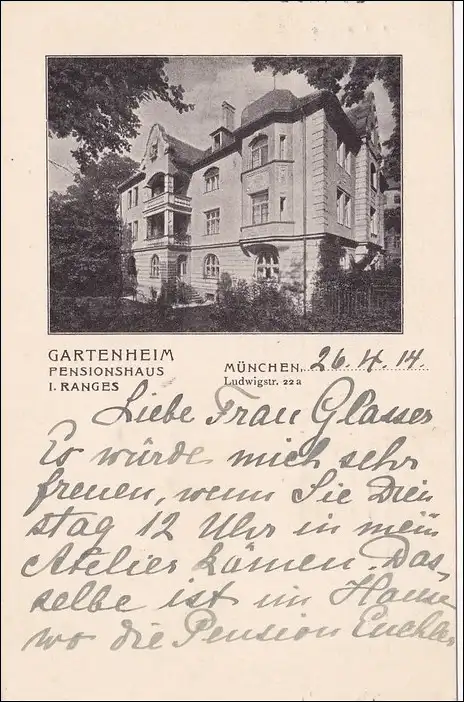 GARTENHEIM
PENSIONSHAUS
I. RANGES
MÜNCHEN, 26.4.14.
Ludwigstr. 22 a
Liebe Frau Glasser
Es würde mich sehr
freuen, wenn Sie Dien
stag 12 Uhr in mein
Atelier kämen. Das-
selbe ist im Hause
wo die Pension